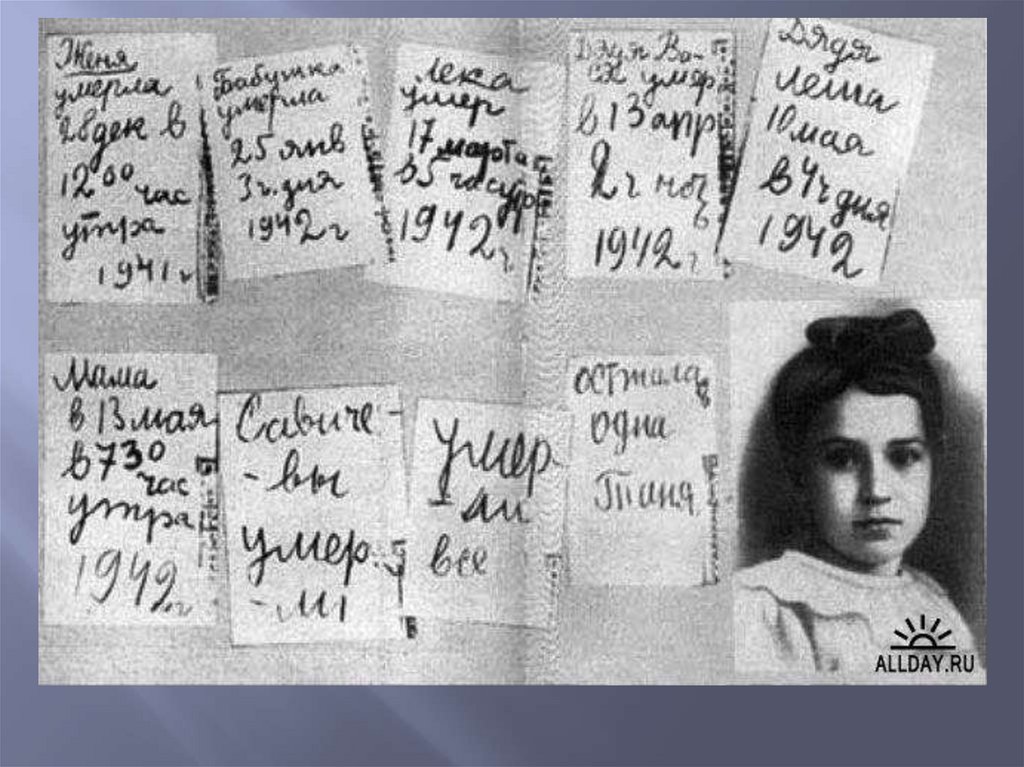 Женя
умерла
28 дек в
12 00 час
утра
1941 г
Бабушка
умерла
25 янв
3 ч. дня
1942 г
Лека
умер
17 марта
в 5 час утр
1942 г
Дядя Ва-
ся умер
в 13 апр
2 ч ноч
1942 г
Дядя
Леша
10 мая
в 4 ч дня
1942
Мама
в 13 мая
в 7 30
час
утра
1942 г
Савиче-
-вы
умер-
-ли
Умер-
-ли
все
Осталась
одна
Таня
ALLDAY.RU